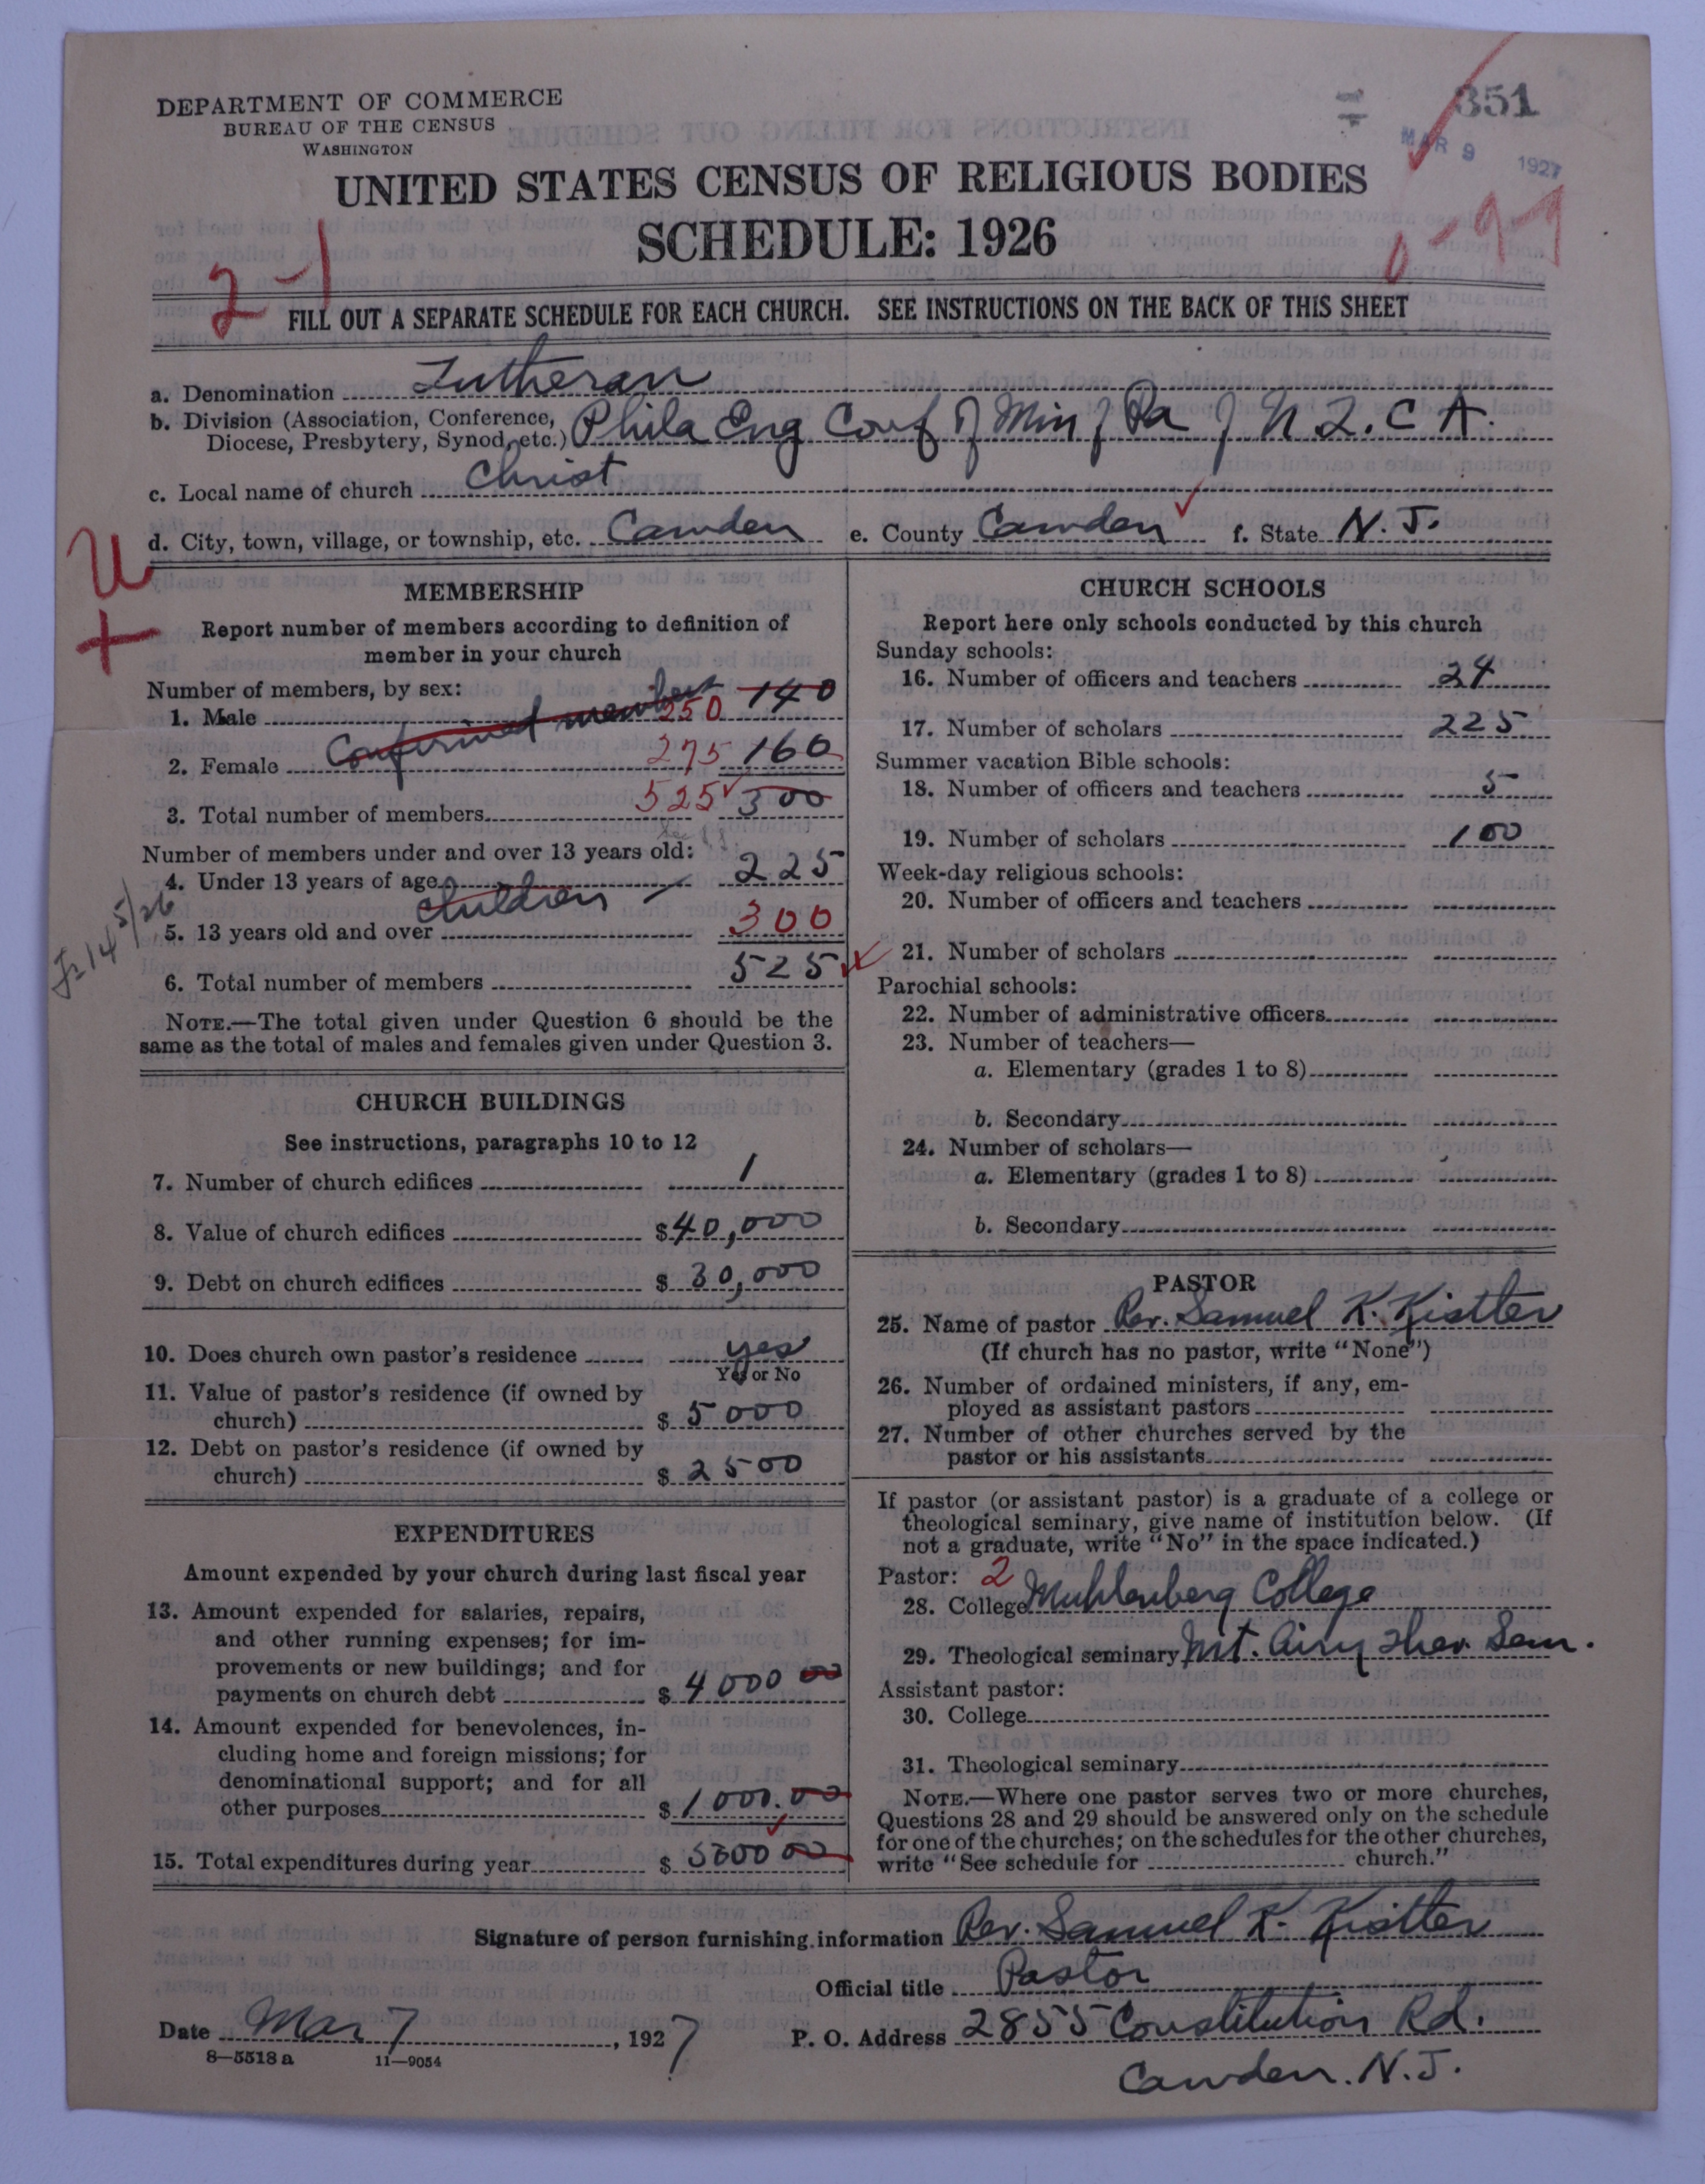 DEPARTMENT OF COMMERCE
BUREAU OF THE CENSUS
WASHINGTON
351
MAR 9 1927
UNITED STATES CENSUS OF RELIGIOUS BODIES
SCHEDULE: 1926
2-1
0-9-7
FILL OUT A SEPARATE SCHEDULE FOR EACH CHURCH. SEE INSTRUCTIONS ON THE BACK OF THIS SHEET
a. Denomination Lutheran
b. Division (Association, Conference, Diocese, Presbytery, Synod, etc.) Phila Eng Conf of Min of Pa of U.L.C.A.
c. Local name of church Christ
d. City, town, village, or township, etc. Camden e. County Camden f. State N. J.
U
+
MEMBERSHIP
Report number of members according to definition of
member in your church
Number of members, by sex:
1. Male Confirmed members 250 140
2. Female 275 160
3. Total number of members 525 300
Number of members under and over 13 years old:
4. Under 13 years of age 225
children
5. 13 years old and over 300
6. Total number of members 525
NOTE.—The total given under Question 6 should be the
same as the total of males and females given under Question 3.
CHURCH BUILDINGS
See instructions, paragraphs 10 to 12
7. Number of church edifices 1
8. Value of church edifices $ 40,000
9. Debt on church edifices $ 30,000
10. Does church own pastor's residence yes
Yes or No
11. Value of pastor's residence (if owned by
church) $ 5000
12. Debt on pastor's residence (if owned by
church) $ 2500
EXPENDITURES
Amount expended by your church during last fiscal year
13. Amount expended for salaries, repairs,
and other running expenses; for im-
provements or new buildings; and for
payments on church debt $ 4000 00
14. Amount expended for benevolences, in-
cluding home and foreign missions; for
denominational support; and for all
other purposes $ 1000.00
15. Total expenditures during year $ 5000 00
CHURCH SCHOOLS
Report here only schools conducted by this church
Sunday schools:
16. Number of officers and teachers 24
17. Number of scholars 225
Summer vacation Bible schools:
18. Number of officers and teachers 5
19. Number of scholars 100
Week-day religious schools:
20. Number of officers and teachers
21. Number of scholars
Parochial schools:
22. Number of administrative officers
23. Number of teachers—
a. Elementary (grades 1 to 8)
b. Secondary
24. Number of scholars—
a. Elementary (grades 1 to 8)
b. Secondary
PASTOR
25. Name of pastor Rev. Samuel K. Kistler
(If church has no pastor, write "None")
26. Number of ordained ministers, if any, em-
ployed as assistant pastors
27. Number of other churches served by the
pastor or his assistants
If pastor (or assistant pastor) is a graduate of a college or
theological seminary, give name of institution below. (If
not a graduate, write "No" in the space indicated.)
Pastor: 2
28. College Muhlenberg College
29. Theological seminary Mt. Airy Theo. Sem.
Assistant pastor:
30. College
31. Theological seminary
NOTE.—Where one pastor serves two or more churches,
Questions 28 and 29 should be answered only on the schedule
for one of the churches; on the schedules for the other churches,
write "See schedule for church."
Signature of person furnishing information Rev. Samuel K. Kistler
Official title Pastor
Date Mar 7, 1927 P. O. Address 2855 Constitution Rd.
8—5518 a 11—9054
Camden. N. J.